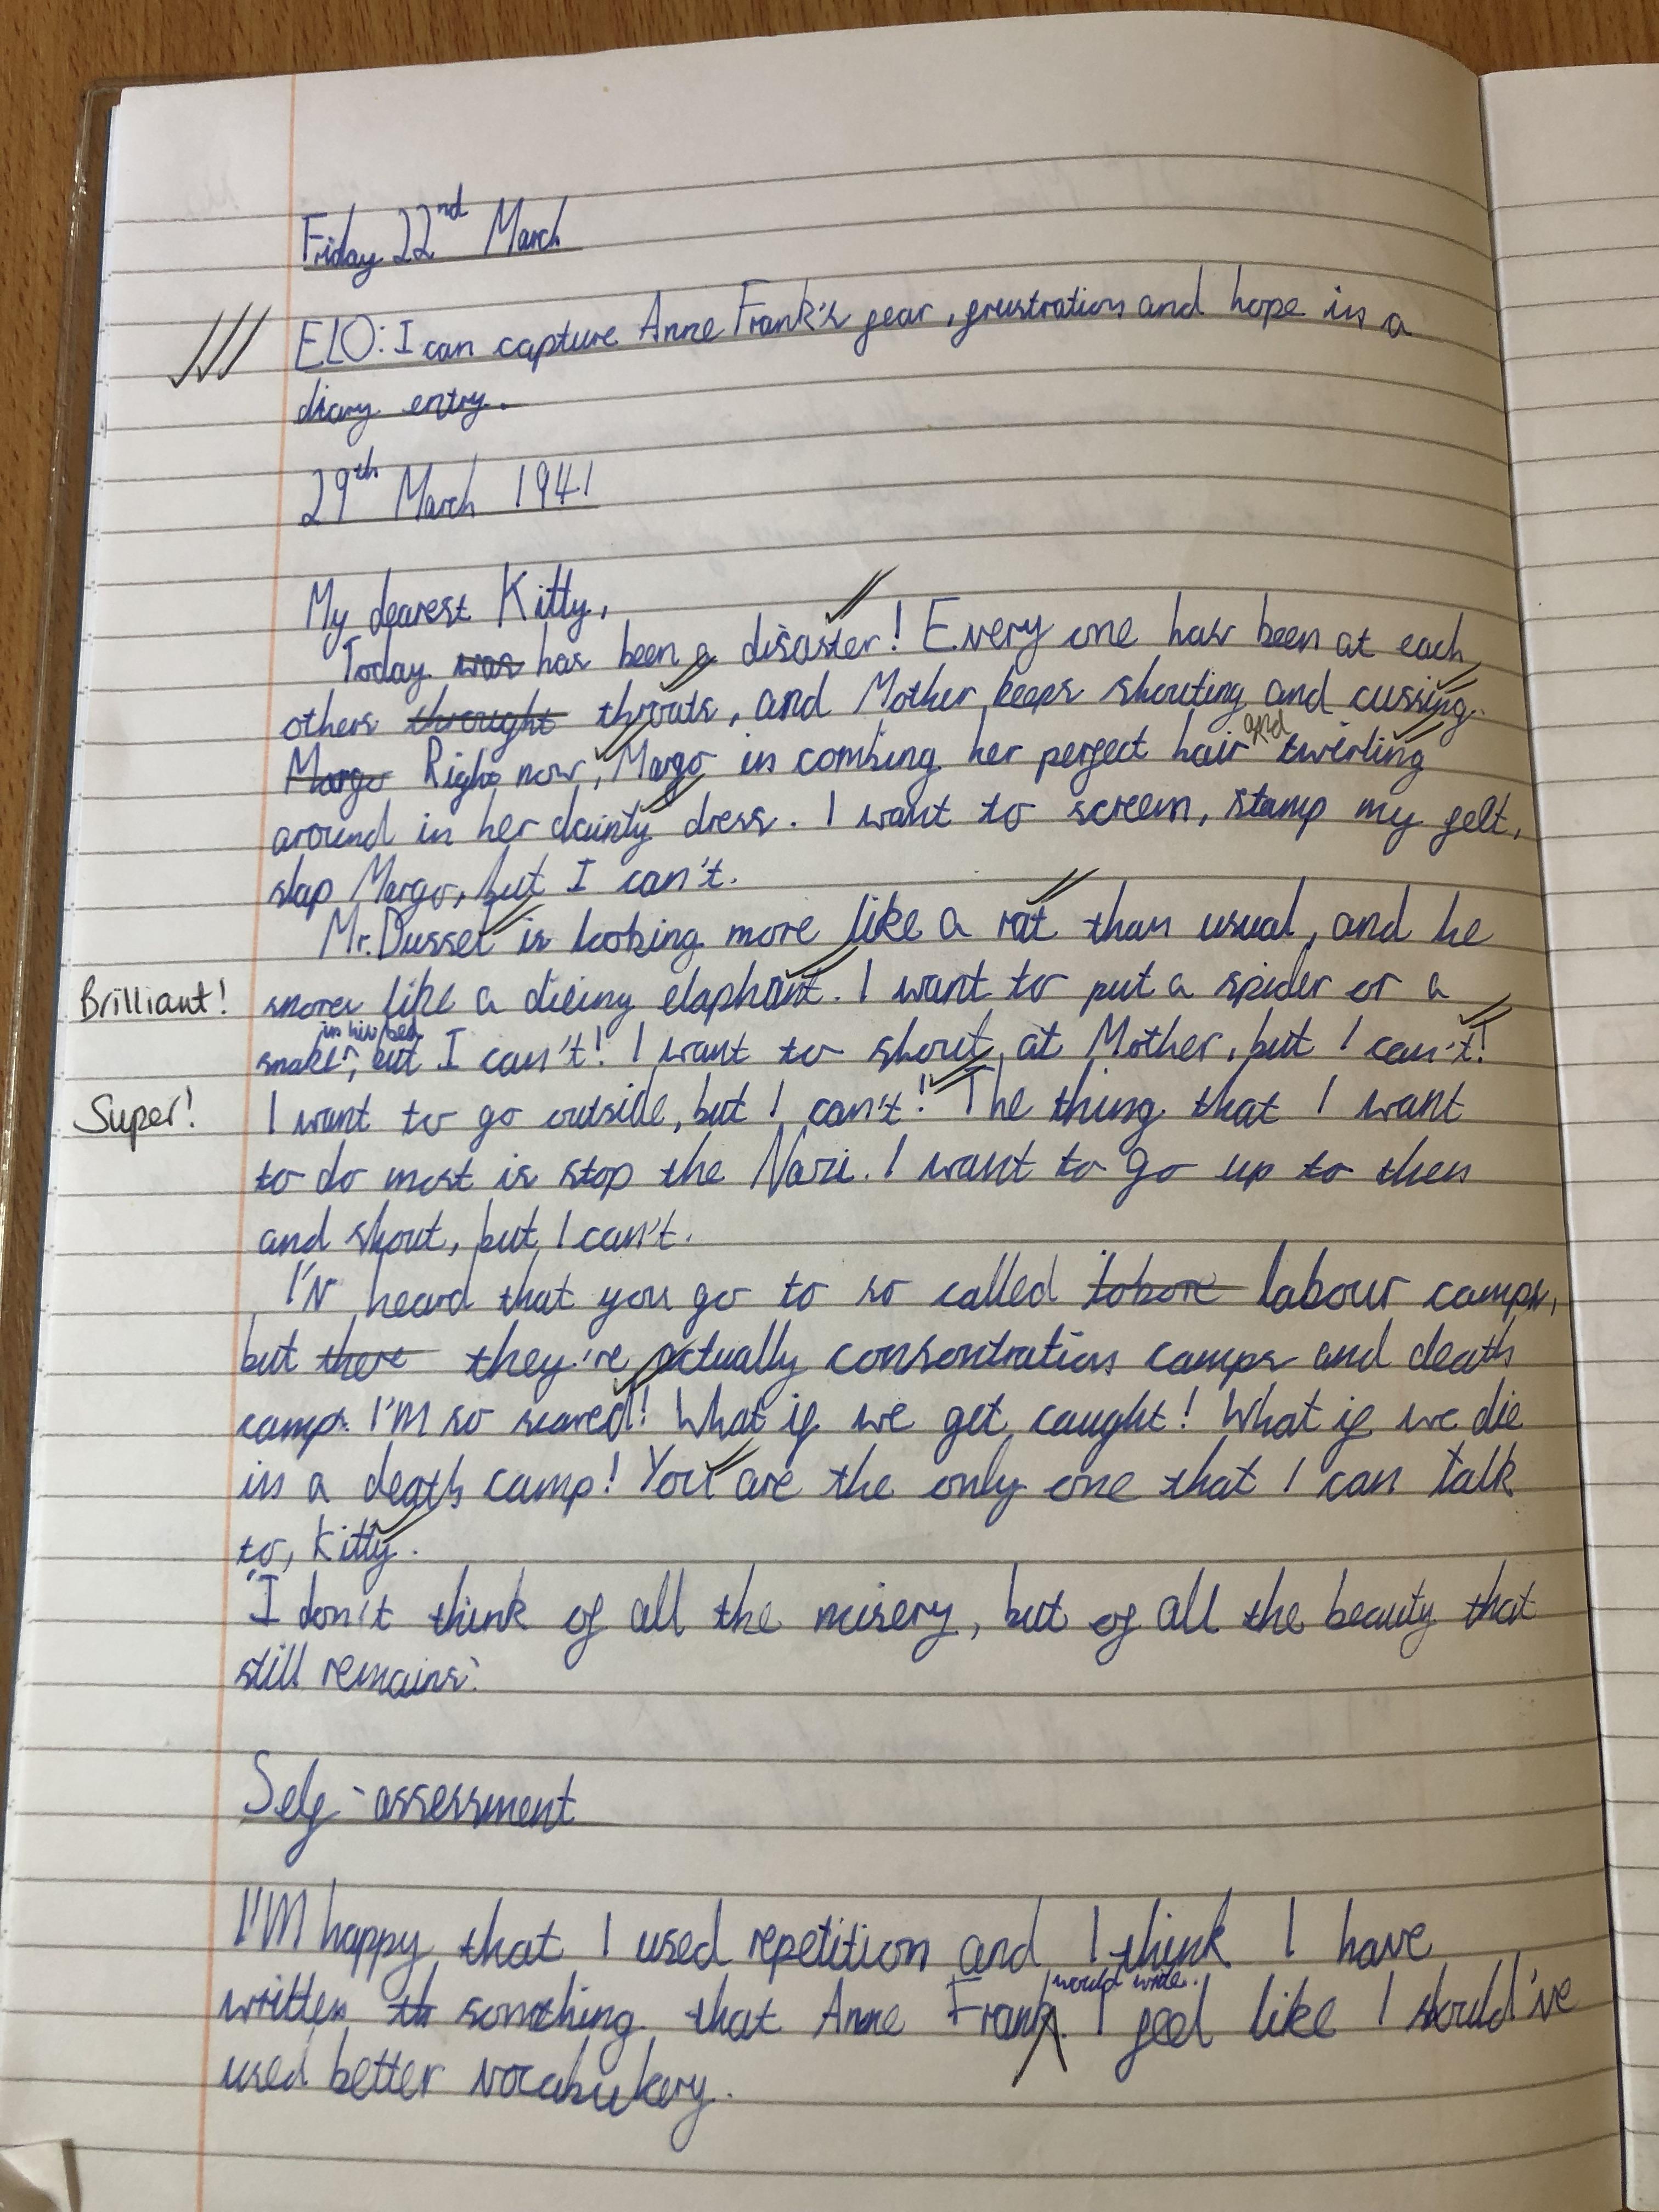 Friday 22nd March
ELO: I can capture Anne Frank's fear, frustration and hope in a
diary entry.
29th March 1941
My dearest Kitty,
Today was has been a disaster! Every one has been at each
others throught throats, and Mother keeps shouting and cussing.
Margo Right now, Margo is combing her perfect hair and twirling
around in her dainty dress. I want to screem, stamp my felt,
slap Margo, but I can't.
Mr.Dussel is looking more like a rat than usual, and he
Brilliant! snores like a dieing elaphant. I want to put a spider or a
snake in his bed, but I can't! I want to shout at Mother, but I can't!
Super! I want to go outside, but I can't! The thing that I want
to do most is stop the Nazi. I want to go up to then
and shout, but I can't.
I'v heard that you go to so called labore labour camps,
but there they're actually consontration camps and death
camp. I'M so scared! What if we get caught! What if we die
in a death camp! You are the only one that I can talk
to, Kitty.
"I don't think of all the misery, but of all the beauty that
still remains."
Self-assessment
I'M happy that I used repetition and I think I have
written th something that Anne Frank would write. I feel like I should've
used better vocabulary.